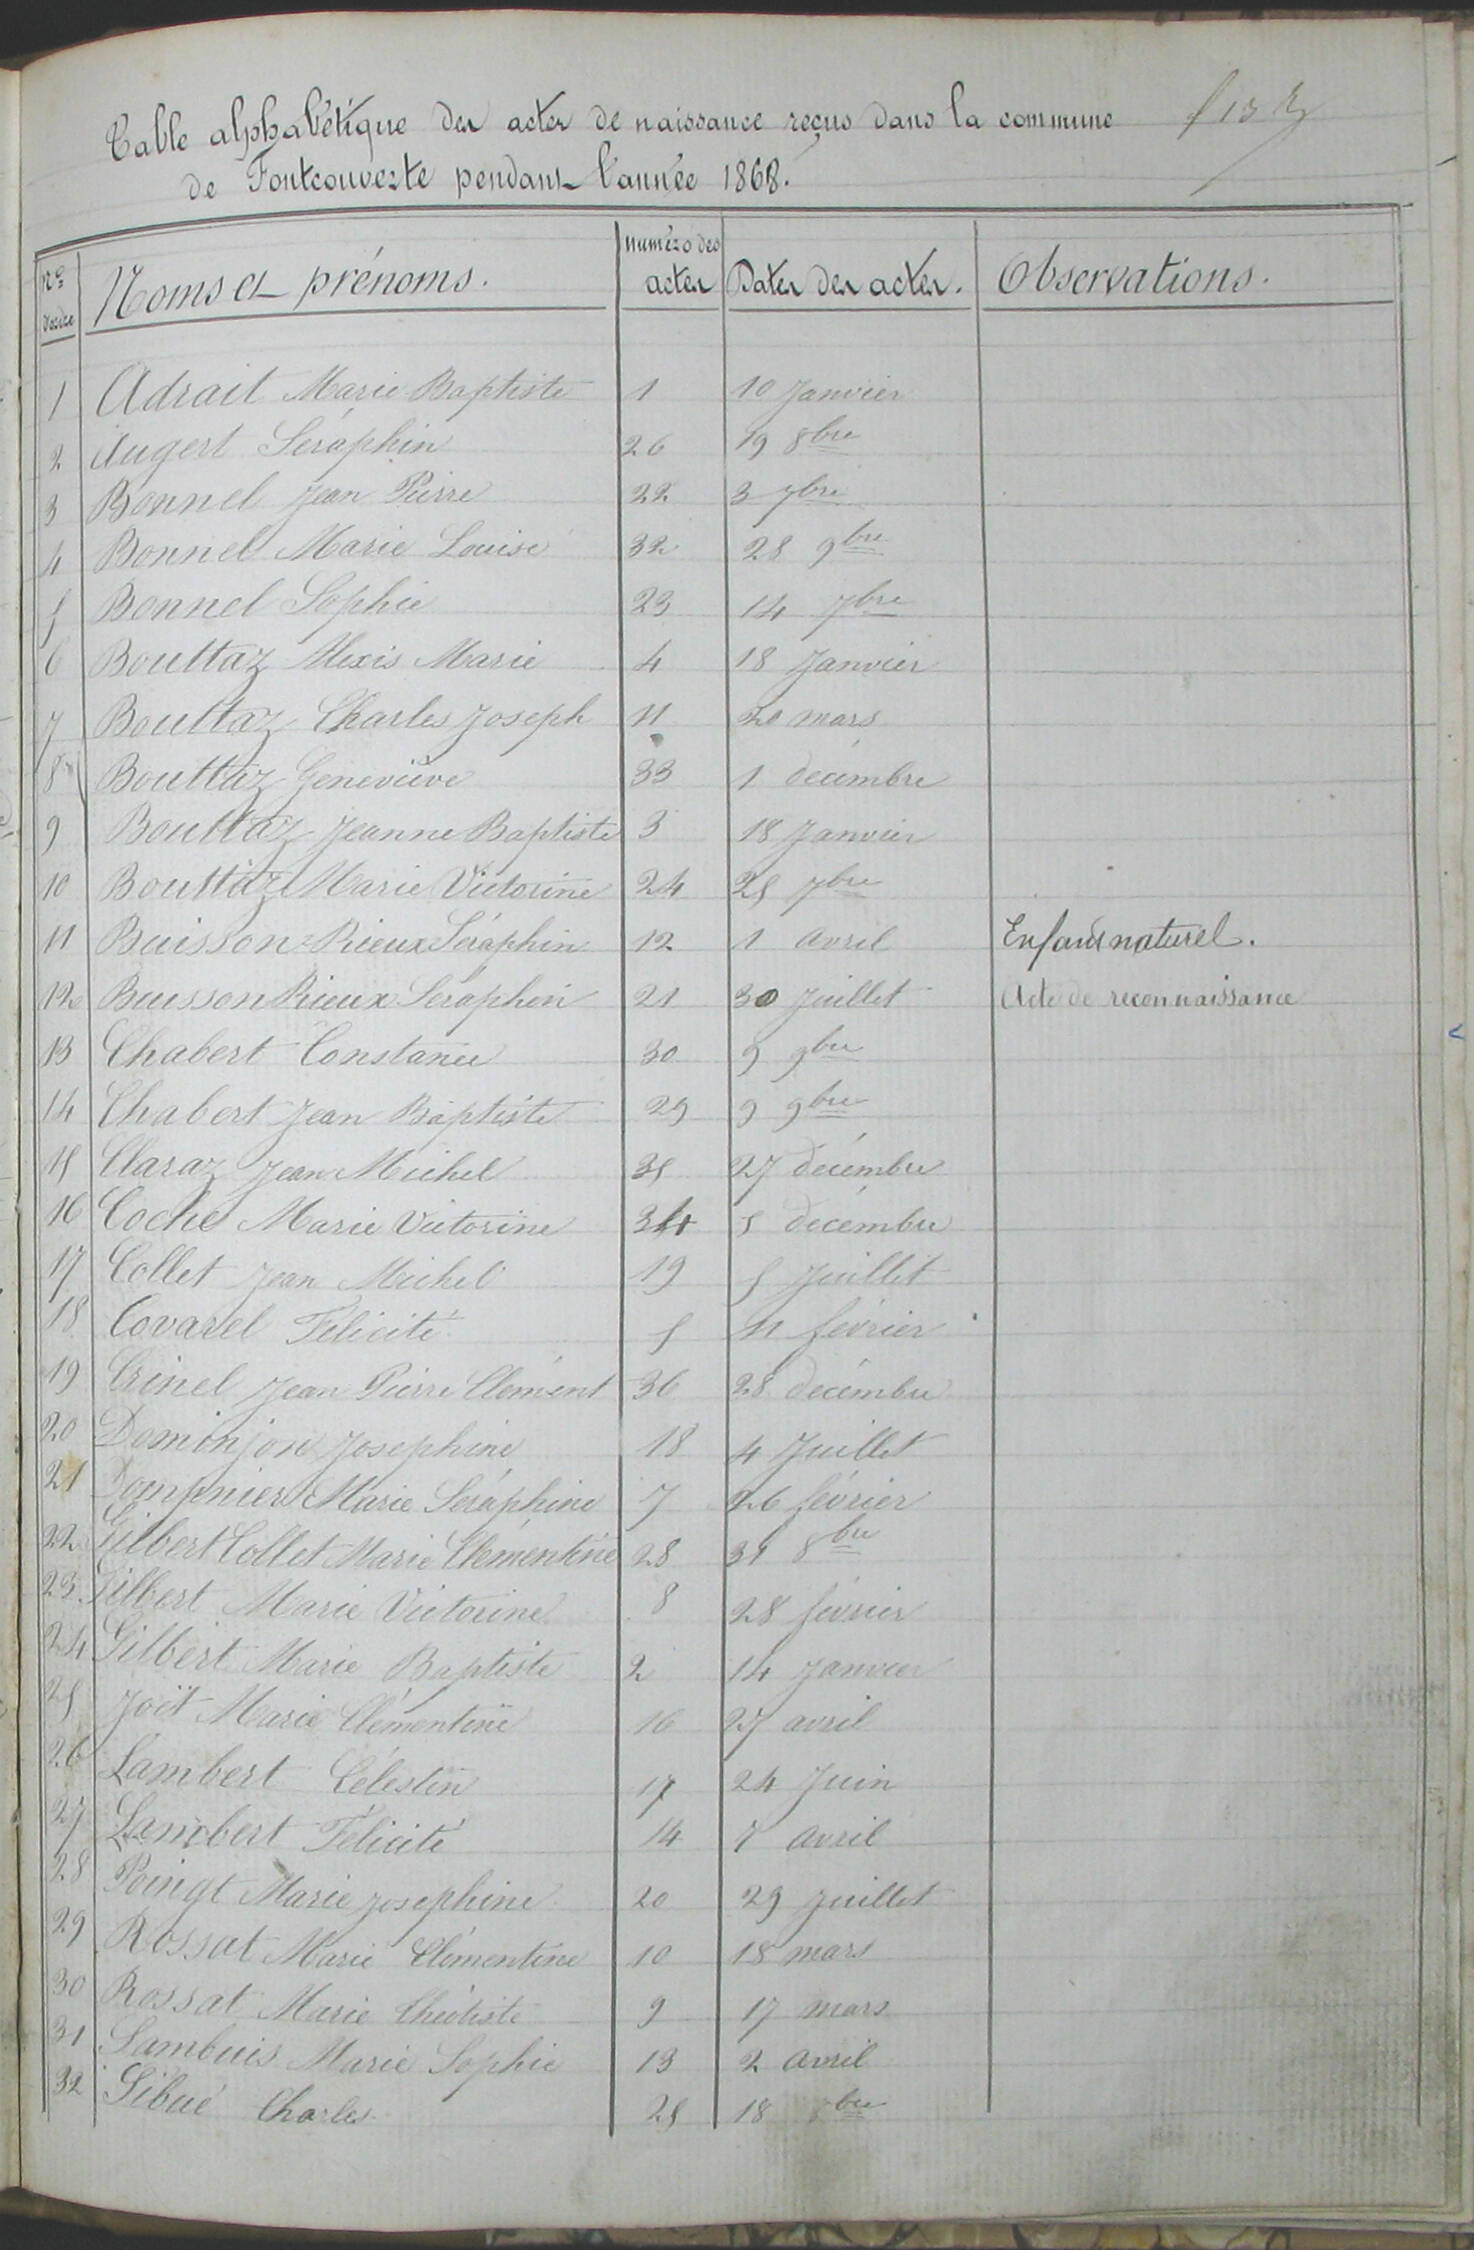 Table alphabétique des actes de naissance reçus dans la commune
de Fontcouverte pendant l'année 1868.
Nos d'ordre Noms et prénoms. numéro des actes Dates des actes. Observations.
1 Adrait Marie Baptiste 1 10 Janvier
2 Augert Séraphin 26 19 8bre
3 Bonnel Jean Pierre 22 3 7bre
4 Bonnel Marie Louise 32 28 9bre
5 Bonnel Sophie 23 14 7bre
6 Bouttaz Alexis Marie 4 18 Janvier
7 Bouttaz Charles Joseph 11 20 mars
8 Bouttaz Geneviève 33 1 décembre
9 Bouttaz Jeanne Baptiste 3 18 Janvier
10 Bouttaz Marie Victorine 24 25 7bre
11 Buisson Rieux Séraphin 12 1 avril Enfant naturel.
12 Buisson Rieux Séraphin 21 30 Juillet Acte de reconnaissance
13 Chabert Constance 30 9 9bre
14 Chabert Jean Baptiste 29 9 9bre
15 Claraz Jean Michel 35 27 décembre
16 Coche Marie Victorine 34 5 décembre
17 Collet Jean Michel 19 5 Juillet
18 Covarel Félicité 5 11 février
19 Crinel Jean Pierre Clément 36 28 décembre
20 Dominjon Josephine 18 4 Juillet
21 Dompnier Marie Séraphine 7 26 février
22 Gilbert Collet Marie Clémentine 28 31 8bre
23 Gilbert Marie Victorine 8 28 février
24 Gilbert Marie Baptiste 2 14 Janvier
25 Joët Marie Clémentine 16 27 avril
26 Lambert Célestin 17 24 Juin
27 Lambert Félicité 14 7 avril
28 Poingt Marie Josephine 20 29 Juillet
29 Rossat Marie Clémentine 10 18 mars
30 Rossat Marie Théotiste 9 17 mars
31 Sambuis Marie Sophie 13 2 avril
32 Sibué Charles 25 18 bre